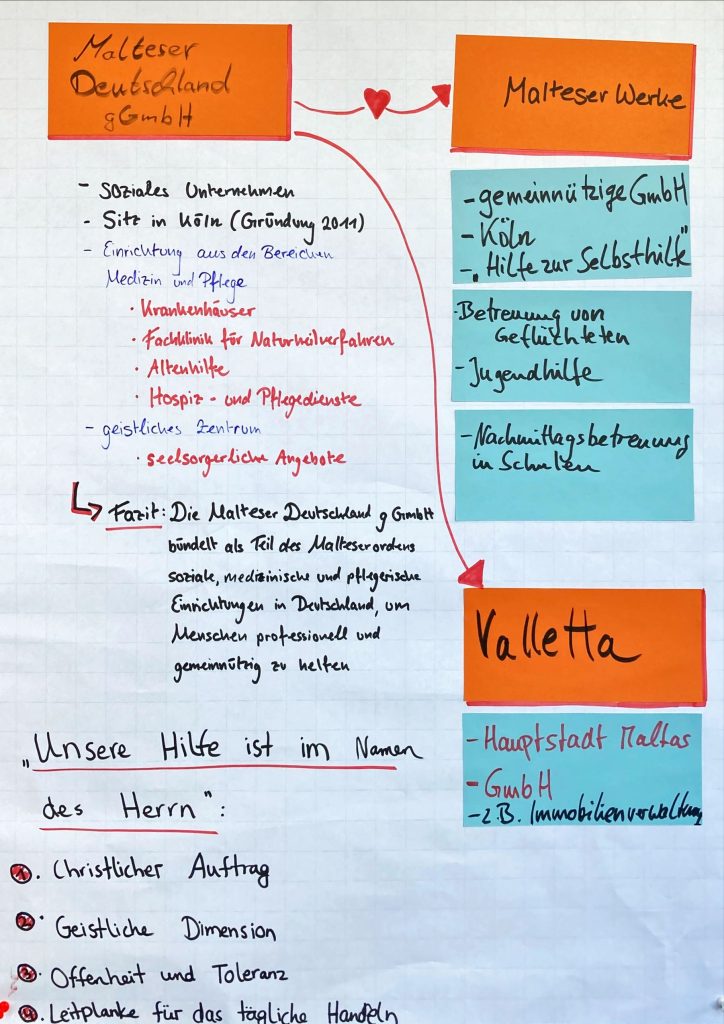 Malteser
Deutschland
gGmbH
- soziales Unternehmen
- Sitz in Köln (Gründung 2011)
- Einrichtung aus den Bereichen
Medizin und Pflege
• Krankenhäuser
• Fachklinik für Naturheilverfahren
• Altenhilfe
• Hospiz- und Pflegedienste
- geistliches Zentrum
• seelsorgerliche Angebote
Fazit: Die Malteser Deutschland gGmbH
bündelt als Teil des Malteserordens
soziale, medizinische und pflegerische
Einrichtungen in Deutschland, um
Menschen professionell und
gemeinnützig zu helfen
Malteser Werke
- gemeinnützige GmbH
- Köln
- „Hilfe zur Selbsthilfe"
- Betreuung von
Geflüchteten
- Jugendhilfe
- Nachmittagsbetreuung
in Schulen
Valletta
- Hauptstadt Maltas
- GmbH
- z.B. Immobilienverwaltung
„Unsere Hilfe ist im Namen
des Herrn":
1. Christlicher Auftrag
2. Geistliche Dimension
3. Offenheit und Toleranz
4. Leitplanke für das tägliche Handeln